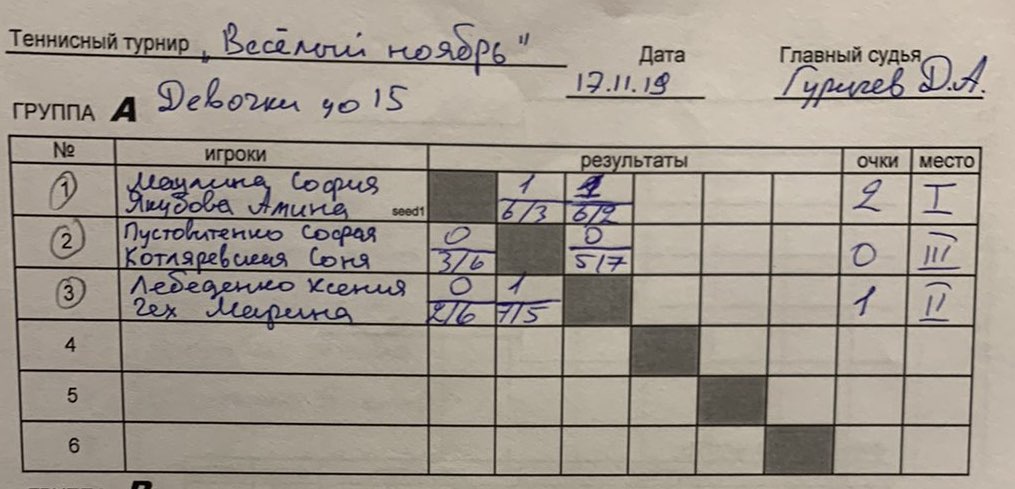 Теннисный турнир „Весёлый ноябрь"
Дата
Главный судья
17.11.19
Д.А.
ГРУППА А Девочки до 15
№ игроки результаты очки место
1 Маулина София 1 1 2 I
Якубова Амина seed1 6/3 6/2
2 Пустовитенко София 0 0 0 III
Котляревская Соня 3/6 5/7
3 Лебеденко Ксения 0 1 1 II
Чех Марина 2/6 7/5
4
5
6